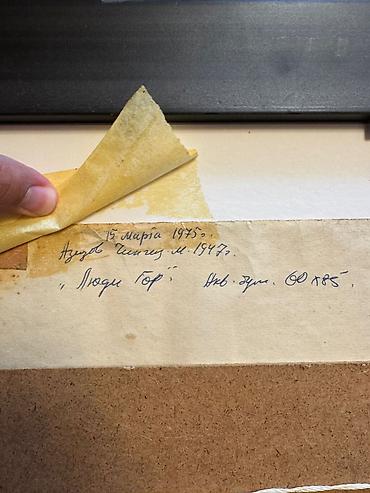 15 марта 1975г.
Азизов Чингиз м. 1947г.
„Люди Гор". Акв. бум. 60х85.